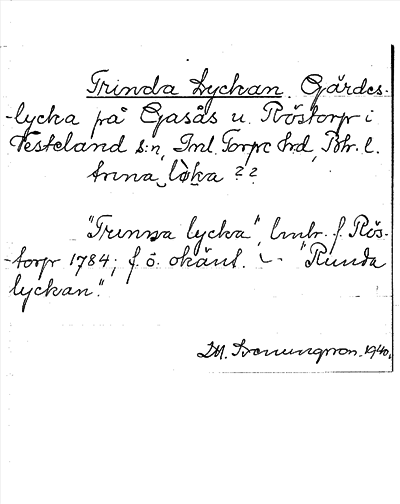 Trinda Lyckan. Gärdes-
-lycka på Gasås u. Röstorp i
Vesteland s:n, Iml. Torpe hrd, Bhr. l.
trina lo̱ka ??
"Trinna lycka", lmbr. f. Rös-
-torp 1784; f. ö. okänt. - "Runda
lyckan".
1940.